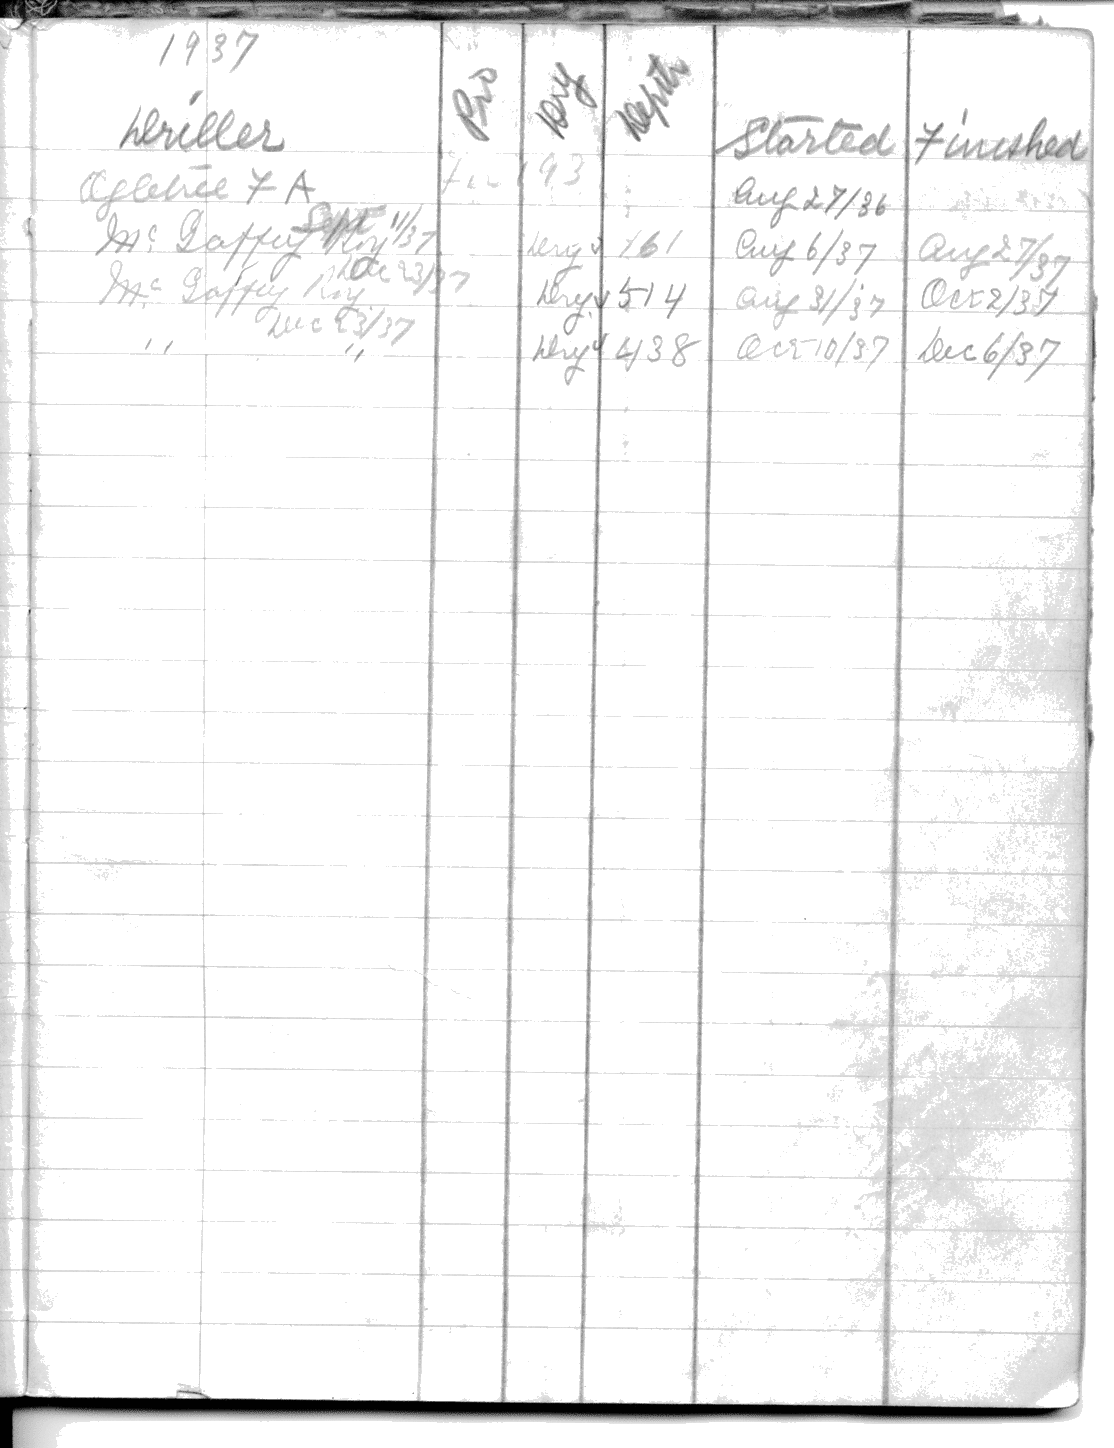 1937
Driller Pro Dry Depth Started Finished
Oglebee F A 193 Aug 27/36
Sept 11/37
Mc Gaffey Roy Dry 161 Aug 6/37 Aug 27/37
Dec 23/37
Mc Gaffey Roy Dry 514 Aug 31/37 Oct 2/37
Dec 23/37
" " Dry 438 Oct 10/37 Dec 6/37